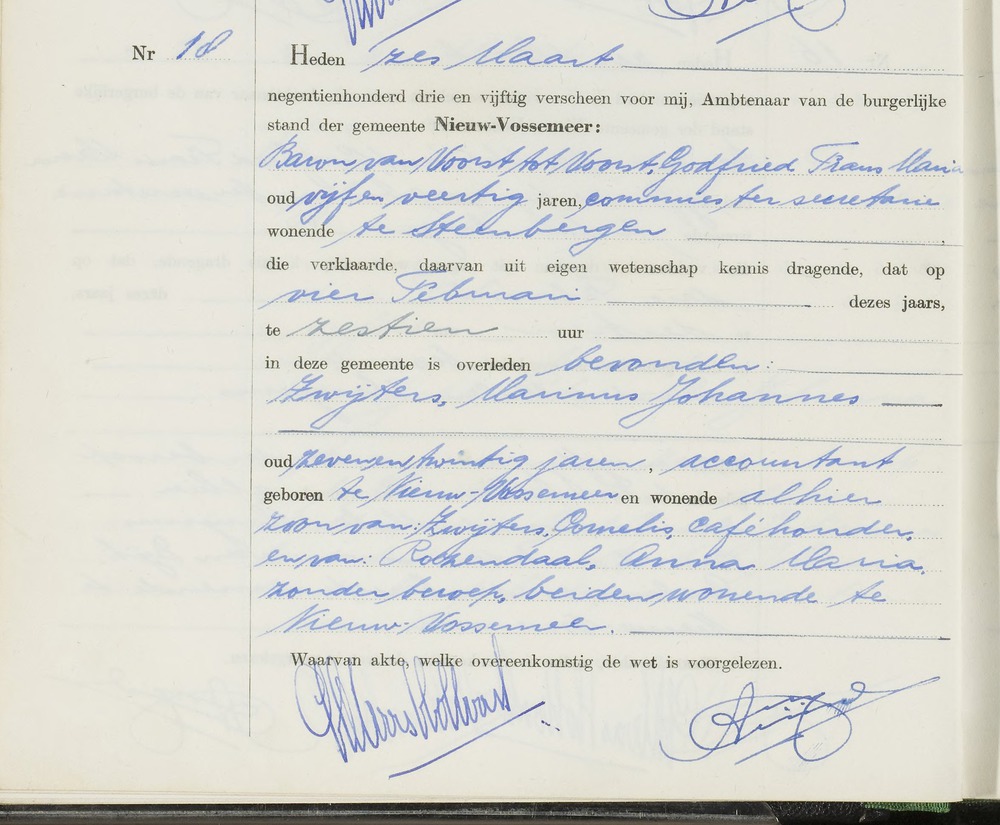 Nr 18
Heden zes Maart
negentienhonderd drie en vijftig verscheen voor mij, Ambtenaar van de burgerlijke
stand der gemeente Nieuw-Vossemeer:
Baron van Voorst tot Voorst, Godfried Frans Maria
oud vijf en veertig jaren, commies ter secretarie
wonende te Steenbergen
die verklaarde, daarvan uit eigen wetenschap kennis dragende, dat op
vier Februari dezes jaars,
te zestien uur
in deze gemeente is overleden bevonden:
Zwijters, Marinus Johannes
oud zevenentwintig jaren, accountant
geboren te Nieuw-Vossemeer en wonende alhier
zoon van: Zwijters, Cornelis, caféhouder,
en van: Rozendaal, Anna Maria,
zonder beroep, beiden wonende te
Nieuw-Vossemeer.
Waarvan akte, welke overeenkomstig de wet is voorgelezen.